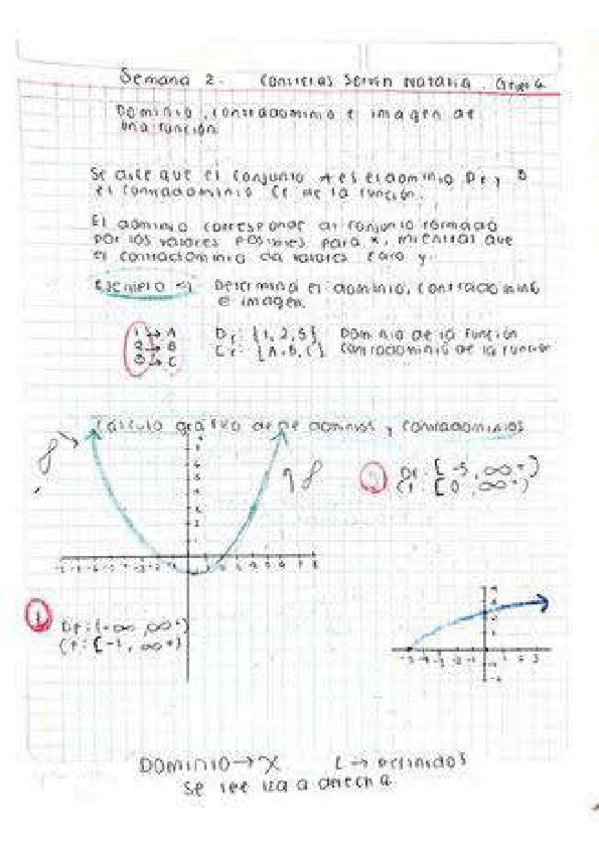 Semana 2. Contreras Servin Natalia. Grupo 4
Dominio, contradominio e imagen de
una función.
Se dice que el conjunto A es el dominio Df y B
el contradominio Cf de la función.
El dominio corresponde al conjunto formado
por los valores posibles para x, mientras que
el contradominio da valores para y.
Ejemplo Determina el dominio, contradominio
e imagen.
1 → A Df: {1, 2, 3} Dominio de la función
2 → B Cf: {A, B, C} Contradominio de la función
3 → C
Cálculo gráfico de dominios y contradominios
2 Df: [-5, ∞+)
Cf: [0, ∞+)
1 Df: (-∞, ∞+)
Cf: [-1, ∞+)
Dominio → X [ → Definidos
Se lee izq a derecha